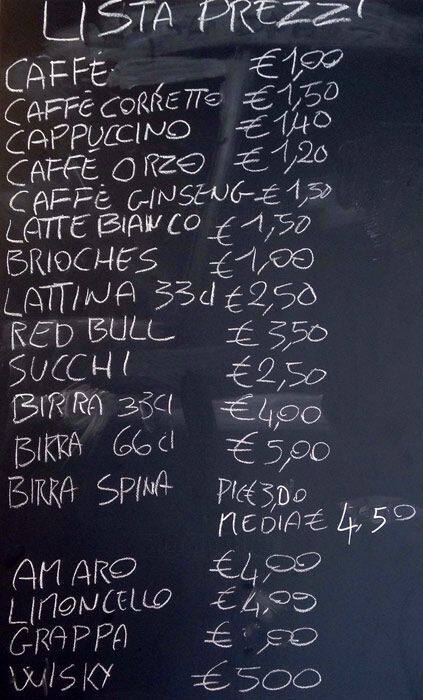 LISTA PREZZI
CAFFÈ €1,00
CAFFÈ CORRETTO €1,50
CAPPUCCINO €1,40
CAFFÈ ORZO €1,20
CAFFÈ GINSENG €1,50
LATTE BIANCO €1,50
BRIOCHES €1,00
LATTINA 33cl €2,50
RED BULL €3,50
SUCCHI €2,50
BIRRA 33cl €4,00
BIRRA 66cl €5,00
BIRRA SPINA PIC€3,00
MEDIA€ 4,50
AMARO €4,00
LIMONCELLO €4,00
GRAPPA €
WISKY €500